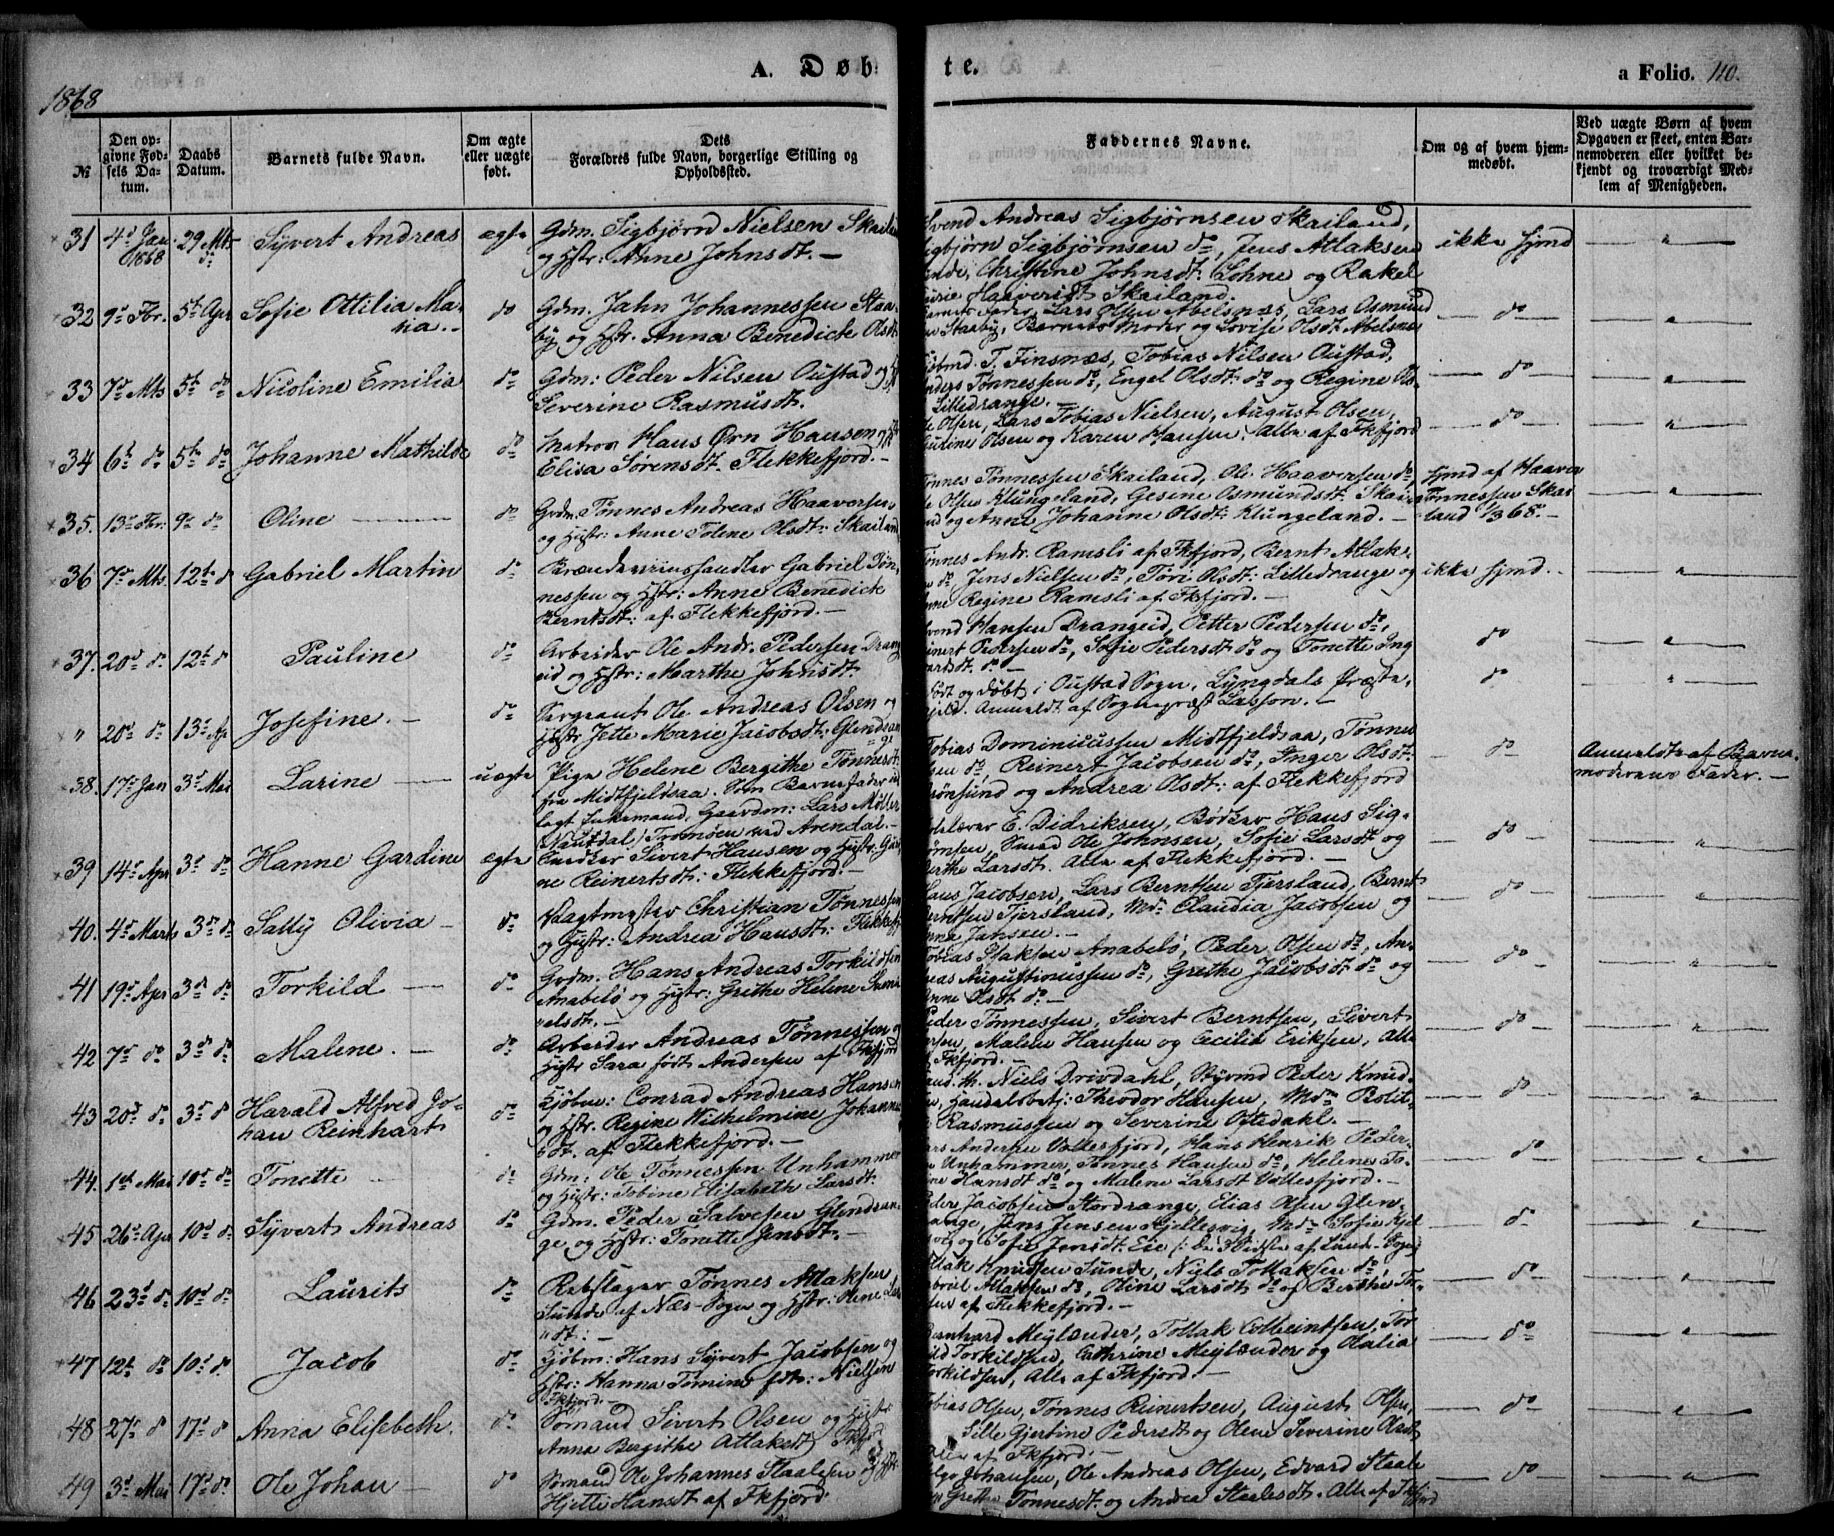 1868
A. Døbte.
a Folio. 110.
№
Den opgivne Fødsels Datum.
Daabs Datum.
Barnets fulde Navn.
Om ægte eller uægte født.
Dets Forældres fulde Navn, borgerlige Stilling og Opholdssted.
Faddernes Navne.
Om og af hvem hjemmedøbt.
Ved uægte Børn af hvem Opgaven er skeet, enten Barnemoderen eller hvilket bekjendt og troværdigt Medlem af Menigheden.
31 4d Jan 1868 29 Mts Syvert Andreas ægte Gdm. Sigbjørn Nielsen Skailan
og Hstr: Anne Johnsdt. —
Svend Andreas Sigbjørnsen Skailand,
Sigbjørn Sigbjørnsen do, Jens Atlaksen
Sunde, Christine Johnsdt. Lohne og Rakel
Haaversdt Skailand.
ikke hjmd
32 9d Fbr. 5te Apr Sofie Ottilia Maria. do Gdm. Jahn Johannessen Staaby
og Hstr. Anna Benedicte Olsdt.
Barnets Fader, Lars Olsen Abelsnæs, Lars Osmund
sen Staaby, Barnets Moder og Lovise Olsdt Abelsnæs
do
33 7d Mts 5te do Nicoline Emilia do Gdm: Peder Nilsen Oustad og Hstr
Severine Rasmusdt.
Kjøbmd. T. Finsnæs, Tobias Nilsen Oustad,
Anders Tønnessen do, Engel Olsdt. do og Regine Ols
Lilledrange.
do
34 6te do 5te do Johanne Mathilde do Matros Hans Ørn Hansen og Hstr
Elisa Sørensdt. Flekkefjord. —
Ole Olsen, Lars Tobias Nielsen, August Olsen,
Olsen og Karen Hansen. Alle af Fkfjord
do
35. 13d Fbr. 9de do Oline do Grdm. Tønnes Andreas Haaversen
og Hustr: Anne Tolene Olsdt: Skailand
Tønnes Tønnessen Skailand, Ole Haaversen do,
Ole Olsen Klungeland, Gesine Osmundsdt. Skai
land og Anne Johanne Olsdt. Klungeland. —
hjmd af Haaver
Tønnessen Skai
land 1/3 68. —
36 7d Mts. 12te do Gabriel Martin do Brændeviinshandler Gabriel Tøn
nessen og Hstr: Anne Benedicte
Berntsdt. af Flekkefjord. —
Tønnes Andr. Ramsli af Fkfjord, Bernt Atlak
sen do, Jens Nielsen do, Tori Olsdt: Lilledrange og
Anne Regine Ramsli af Fkfjord. —
ikke hjmd.
37. 20d do 12te do Pauline do Arbeider Ole Andr. Pedersen Drang
eid og Hstr: Marthe Johnsdt.
Svend Hansen Drangeid, Petter Pedersen do,
Reinert Pedersen do, Sofie Pedersdt do og Tonette Ing
vartsdt. do —
do
" 20d do 13d Ap Josefine. — do Sergeant Ole Andreas Olsen og
Hstr Jette Marie Jacobsdt: Glendran
ge
Født og døbt i Oustad Sogn, Lyngdals Præste
gjeld. Anmeldt af Sognepræst Lasson. —
do
38. 17d Jan 3d Mai Larine uægte Pige Helene Bergithe Tønnesdt:
fra Midtfjeldsaa. Som Barnefader ud
lagt Enkemand, Gaardm: Lars Møller
Nautdal, Tromøen ved Arendal. —
Tobias Dominicussen Midtfjeldsaa, Tønnes
Olsen do, Reinert Jacobsen do, Inger Olsdt.
Grønsund og Andrea Olsdt: af Flekkefjord
do
Anmeldte af Barne
moderens Fader. —
39 14d Apr 3d do Hanne Gardine ægte Snedker Sivert Hansen og Hustr. Gur
ne Reinertsdt: Flekkefjord. —
E. Didriksen, Bødker Hans Sig
bjørnsen, Smed Ole Johnsen, Sofie Larsdt og
Berthe Larsdt. Alle af Flekkefjord. —
do
40. 4d Marts 3d do Sally Olivia do Vagtmester Christian Tønnessen
og Hustr: Andrea Hansdt: Flekkefj
Hans Jacobsen, Lars Berntsen Tjersland, Bernt
Berntsen Tjersland, Md. Claudia Jacobsen og
Anna Jahnsen. —
do
41 19d Apr 3d do Torkild do Grdm. Hans Andreas Torkildsen
Anabelø og Hstr: Grethe Helene Sam
uelsdt. —
Tobias Isaksen Anabelø, Peder Olsen do, An
dreas Augustinussen do, Grethe Jacobsdt do og
Anne Olsdt do —
do
42 7d do 3d do Malene. — do Arbeider Andreas Tønnessen og
Hustr Sara født Andersen af Fkfjord
Peder Tønnessen, Sivert Berntsen, Sivert
Larsen, Malene Hansen og Cecilia Eriksen, Alle
af Fkfjord. —
do
43 20d do 3d do Harald Alfred Jo
han Reinhart do Kjøbm: Conrad Andreas Hansen
og Hstr. Regine Wilhelmine Johannes
dt. af Flekkefjord. —
Niels Drivdahl, Styrmd Peder Knud
sen, Handelsbetj: Theodor Hansen, Md. Bolit
te Rasmussen og Severine Ostedahl. —
do
44. 1ste Mai 10d do Tonette do Gdm: Ole Tønnessen Unhammer
og Hustr: Tobine Elisabeth Larsdt.
Lars Andersen Vollesfjord, Hans Henrik Peder
sen Unhammer, Tønnes Hansen do, Helene To
ne Hansdt do og Malene Larsdt Vollesfjord. —
do
45 26d Apr 10d do Syvert Andreas do Gdm. Peder Salvesen Glendran
ge og Hstr: Tonette Jensdt. —
Peder Jacobsen Stordrange, Elias Olsen Glen
drange, Jens Jensen Kjellesvig, Md. Sofie
og Sofie Jensdt. Eie (: De 3 Sidste af Lunds Sogn
do
46 23d do 10d do Laurits do Rebslager Tønnes Atlaksen
Sunde af Næs Sogn og Hstr: Oline Lars
dt: —
Atlak Knudsen Sunde, Niels Tollaksen do,
Gabriel Atlaksen do, Oline Larsdt do og Berthe
sen af Flekkefjord. —
do
47 12te do 10d do Jacob do Kjøbm: Hans Syvert Jacobsen og
Hstr: Hanna Tomine fdt: Nielsen
Fkfjord.
Bernhard Meylænder, Tollak Torkildsen, Tor
kild Torkildsen, Cathrine Meylænder og Malia
Torkildsen, Alle af Fkfjord. —
do
48 27d do 17d do Anna Elisebeth. do Sømand Sivert Olsen og Hustr
Anna Bergithe Atlaksdt. Fkfjord
Tobias Olsen, Tønnes Reinertsen, August Olsen,
Sille Gjertine Pedersdt og Olene Severine Olsdt
Alle af Fkfjord. —
do
49 3d Mai 17d do Ole Johan do Sømand Ole Johannes Staalesen og Hstr.
Hjette Hansdt af Fkfjord
Johansen, Ole Andreas Olsen, Edvard Staale
sen Grethe Tønnesdt. og Andrea Staalesdt. Alle af Fkfjord
do